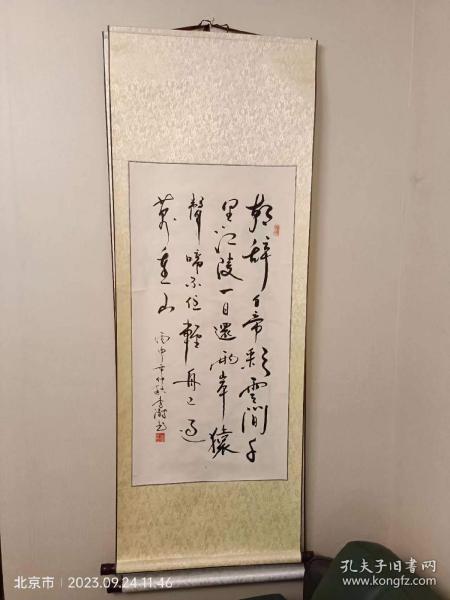 朝辞白帝彩雲間千
里江陵一日還兩岸猿
聲啼不住輕舟已過
萬重山
丙申年仲秋李书
北京市 | 2023.09.24 11:46
孔夫子旧书网
www.kongfz.com